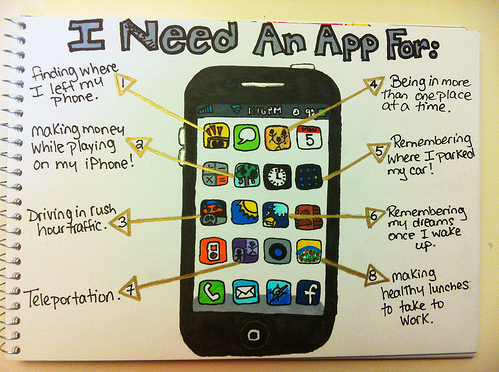 I Need An App For:
finding where
I left my
phone.
1
making money
while playing
on my iPhone!
2
Driving in rush
hour traffic.
3
Teleportation.
7
4
Being in more
than one place
at a time.
5
Remembering
where I parked
my car!
6
Remembering
my dreams
once I wake
up.
8
making
healthy lunches
to take to
work.
1:16 PM
5
f